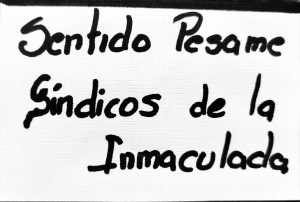 Sentido Pesame
Síndicos de la
Inmaculada